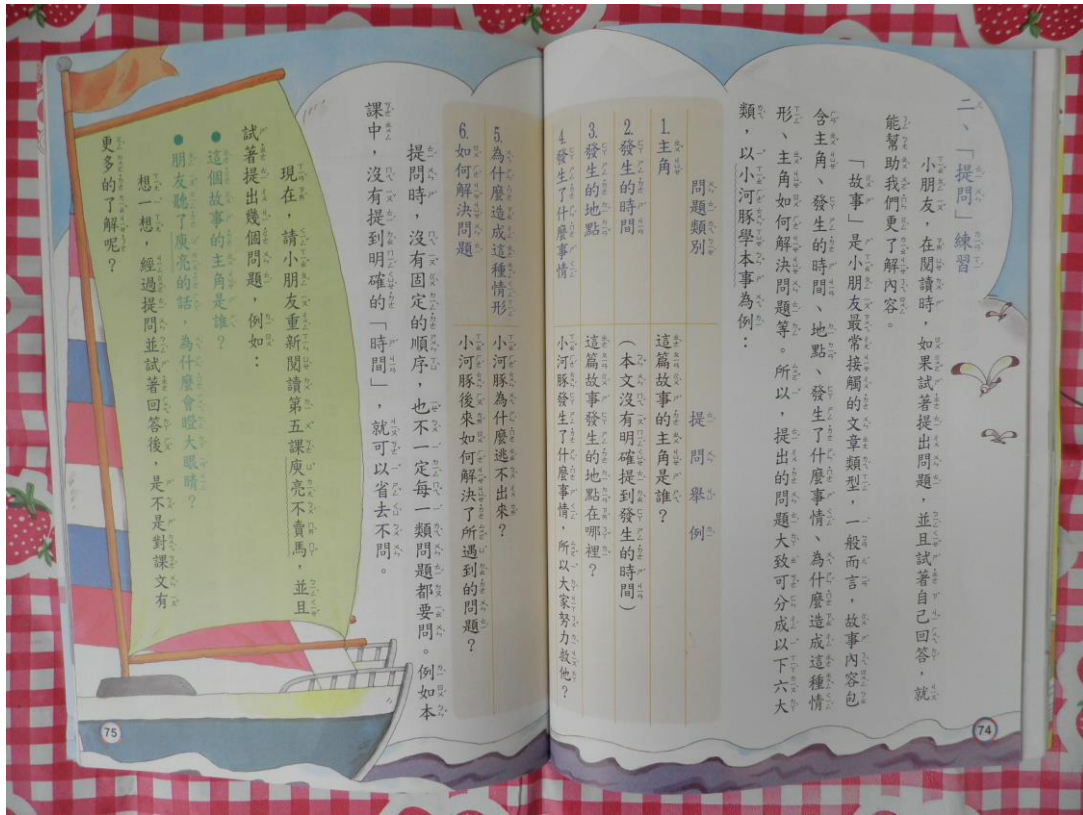 二、「提問」練習
小朋友，在閱讀時，如果試著提出問題，並且試著自己回答，就
能幫助我們更了解內容。
「故事」是小朋友最常接觸的文章類型，一般而言，故事內容包
含主角、發生的時間、地點、發生了什麼事情、為什麼造成這種情
形、主角如何解決問題等。所以，提出的問題大致可分成以下六大
類，以小河豚學本事為例：
問題類別
提問舉例
1. 主角
這篇故事的主角是誰？
2. 發生的時間
（本文沒有明確提到發生的時間）
3. 發生的地點
這篇故事發生的地點在哪裡？
4. 發生了什麼事情
小河豚發生了什麼事情，所以大家努力救他？
5. 為什麼造成這種情形
小河豚為什麼逃不出來？
6. 如何解決問題
小河豚後來如何解決了所遇到的問題？
74
提問時，沒有固定的順序，也不一定每一類問題都要問。例如本
課中，沒有提到明確的「時間」，就可以省去不問。
現在，請小朋友重新閱讀第五課庾亮不賣馬，並且
試著提出幾個問題，例如：
●這個故事的主角是誰？
●朋友聽了庾亮的話，為什麼會瞪大眼睛？
想一想，經過提問並試著回答後，是不是對課文有
更多的了解呢？
75